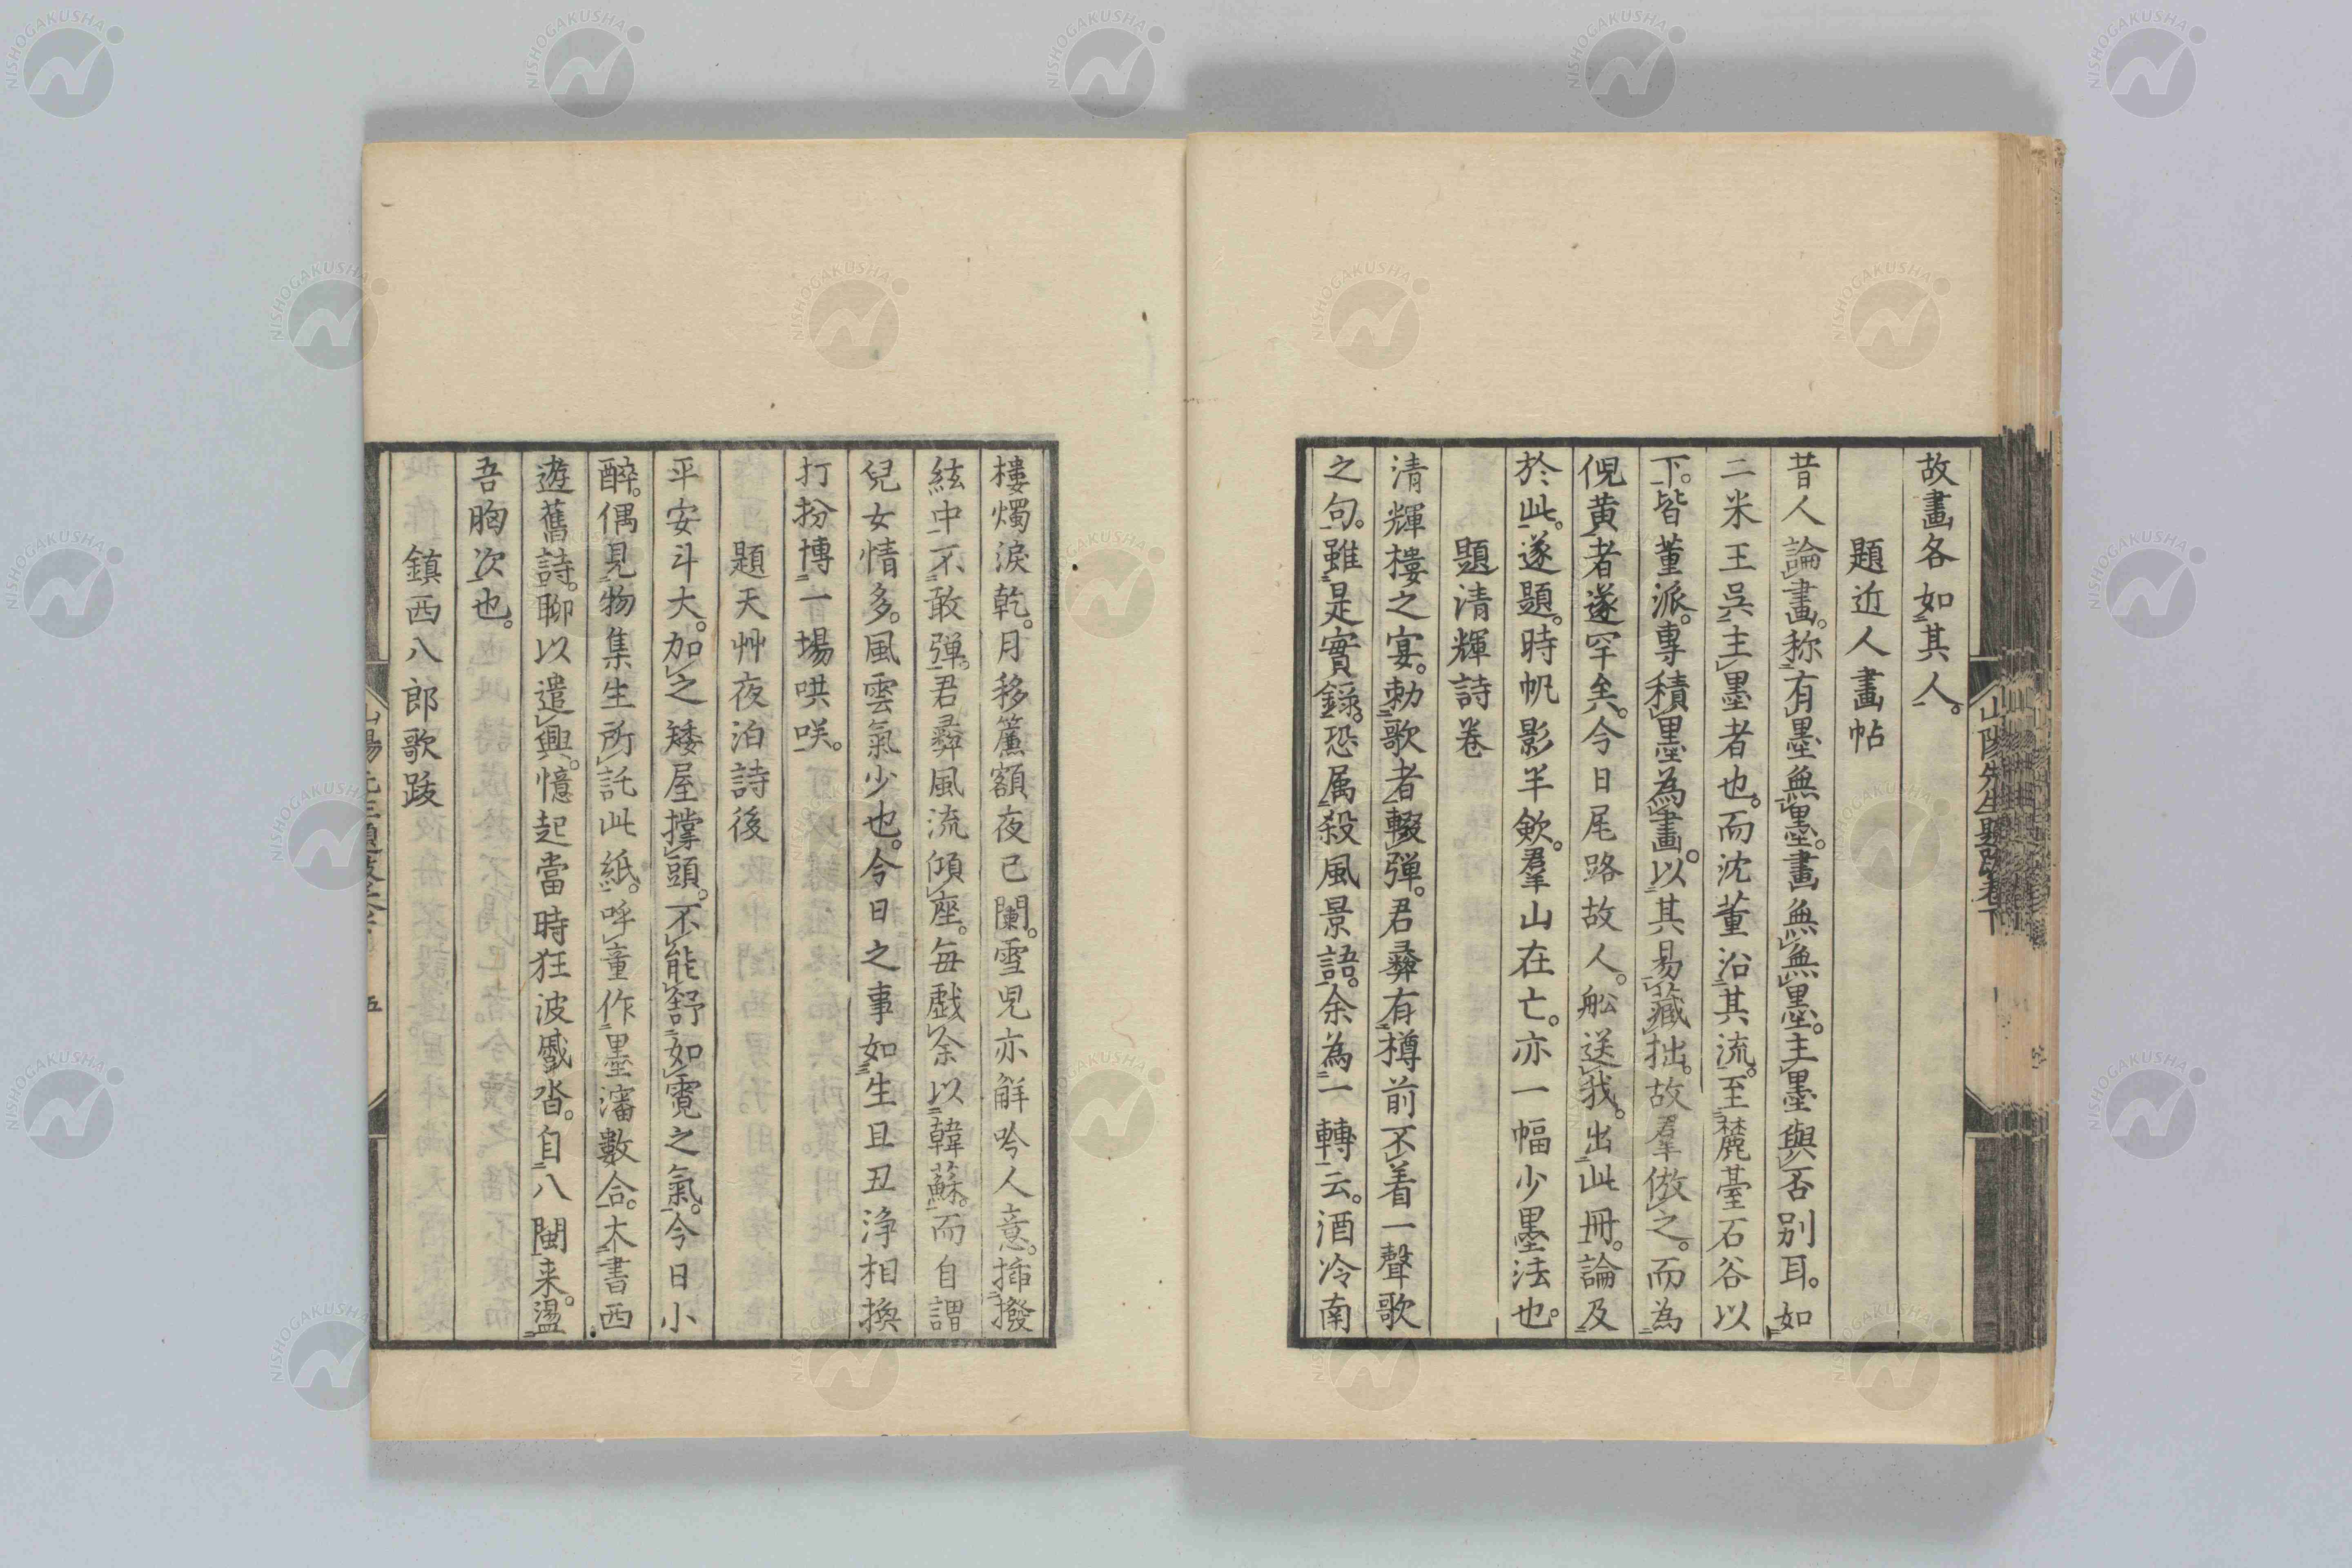 故畫各如其人。
題近人畫帖
昔人論畫。称有墨無墨。畫無無墨。主墨與否別耳。如
二米王吳主墨者也。而沈董沿其流。至麓臺石谷以
下。皆董派。專積墨為畫。以其易藏拙。故羣倣之。而為
倪黄者遂罕矣。今日尾路故人。舩送我。出此冊。論及
於此。遂題。時帆影半欹。羣山在亡。亦一幅少墨法也。
題清輝詩卷
清輝樓之宴。勅歌者輟弾。君彝有樽前不着一聲歌
之句。雖是實錄。恐属殺風景語。余為一轉云。酒冷南
樓燭淚乾。月移簾額夜已闌。雪児亦解吟人意。挿撥
絃中不敢弾。君彝風流傾座。毎戯余以韓蘇。而自謂
兒女情多。風雲氣少也。今日之事如生且丑浄相換
打扮博一場哄咲。
題天艸夜泊詩後
平安斗大。加之矮屋撑頭。不能舒如霓之氣。今日小
醉。偶見物集生所託此紙。呼童作墨瀋數合。大書西
遊舊詩。聊以遣興。憶起當時狂波蹙沓。自八閩来。盪
吾胸次也。
鎮西八郎歌跋
山陽先生題跋卷下
五
NISHOGAKUSHA